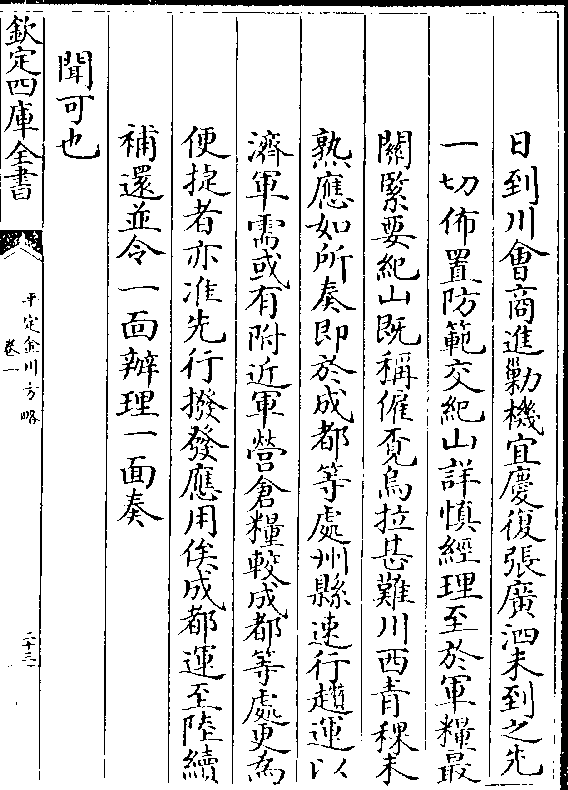 日到川會商進勦機宜慶復張廣泗未到之先
一切佈置防範交紀山詳慎經理至於軍糧最
關緊要紀山既稱僱覓烏拉甚難川西青稞未
熟應如所奏即於成都等處州縣速行趲運以
濟軍需或有附近軍營倉糧較成都等處更為
便捷者亦准先行撥發應用俟成都運至陸續
補還並令一面辦理一面奏
聞可也
欽定四庫全書
平定金川方略
卷一
二十三